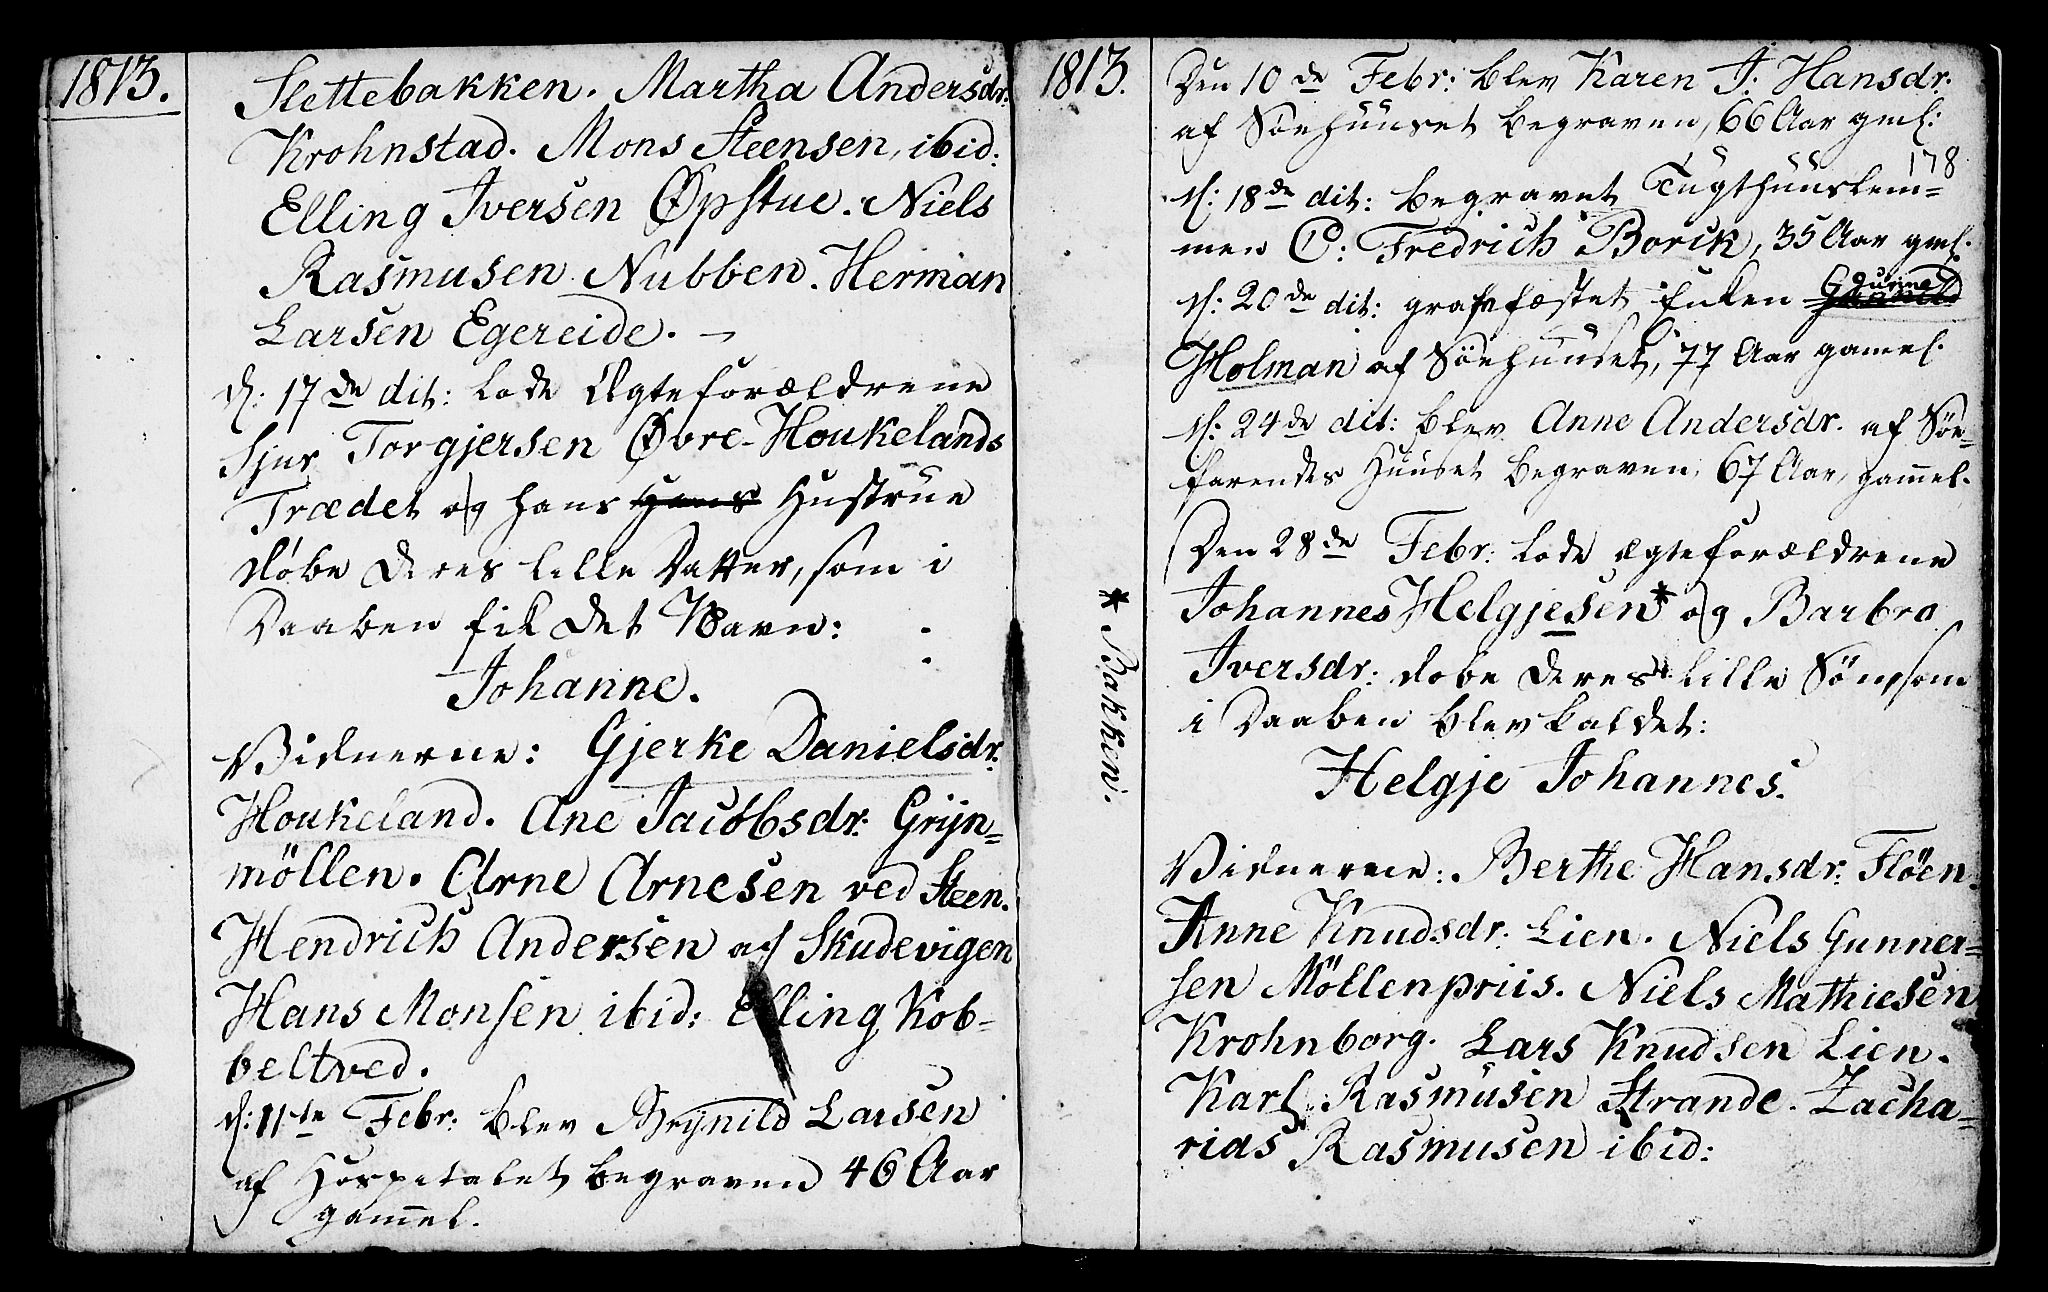 1813.
Slettebakken. Martha Andersdr:
Krohnstad. Mons Steensen, ibid:
Elling Iversen Øpstue. Niels
Rasmusen Nubben. Herman
Larsen Egereide. –
d: 17de dit: lode Ægteforældrene
Sjur Torgjersen Øvre-Houkelands
Trædet og hans Hans Hustrue
döbe deres lille Datter, som i
Daaben fik det Navn:
Johanne.
Vidnerne: Gjerke Danielsdr:
Houkeland. Ane Jacobsdr: Grÿn=
möllen. Arne Arnesen ved Steen.
Hendrich Andersen af Skudevigen
Hans Monsen ibid: Elling Kob=
beltved.
d: 11te Febr: blev Brÿnild Larsen
af Hospetalet begraven 46 Aar
gam̄el.
1813.
Den 10de Febr: blev Karen J: Hansdr:
af Söehuuset begraven, 66 Aar gml:
178
d: 18de dit: begravet Tugthuuslem=
men C: Fredrich Borck, 35 Aar gml.
d: 20de dit: grafvfæstet Enken Gurine
Holman af Söehuuset, 77 Aar gamel.
d: 24de dit: blev Anne Andersdr. af Söe=
farendes Huuset begraven, 67 Aar, gam̄el.
Den 28de Febr: lode Ægteforældrene
Johannes Helgjesen* og Barbro
Iversdr: döbe deres lille Sön, som
i Daaben blev kaldet:
Helgje Johannes.
Vidnerne: Berthe Hansdr: Flöen.
Anne Knudsdr: Lien. Niels Gunner=
sen Möllenpriis. Niels Mathiesen
Krohnborg. Lars Knudsen Lien.
Karl Rasmusen Strande. Zacha=
rias Rasmusen ibid:
* Bakken.